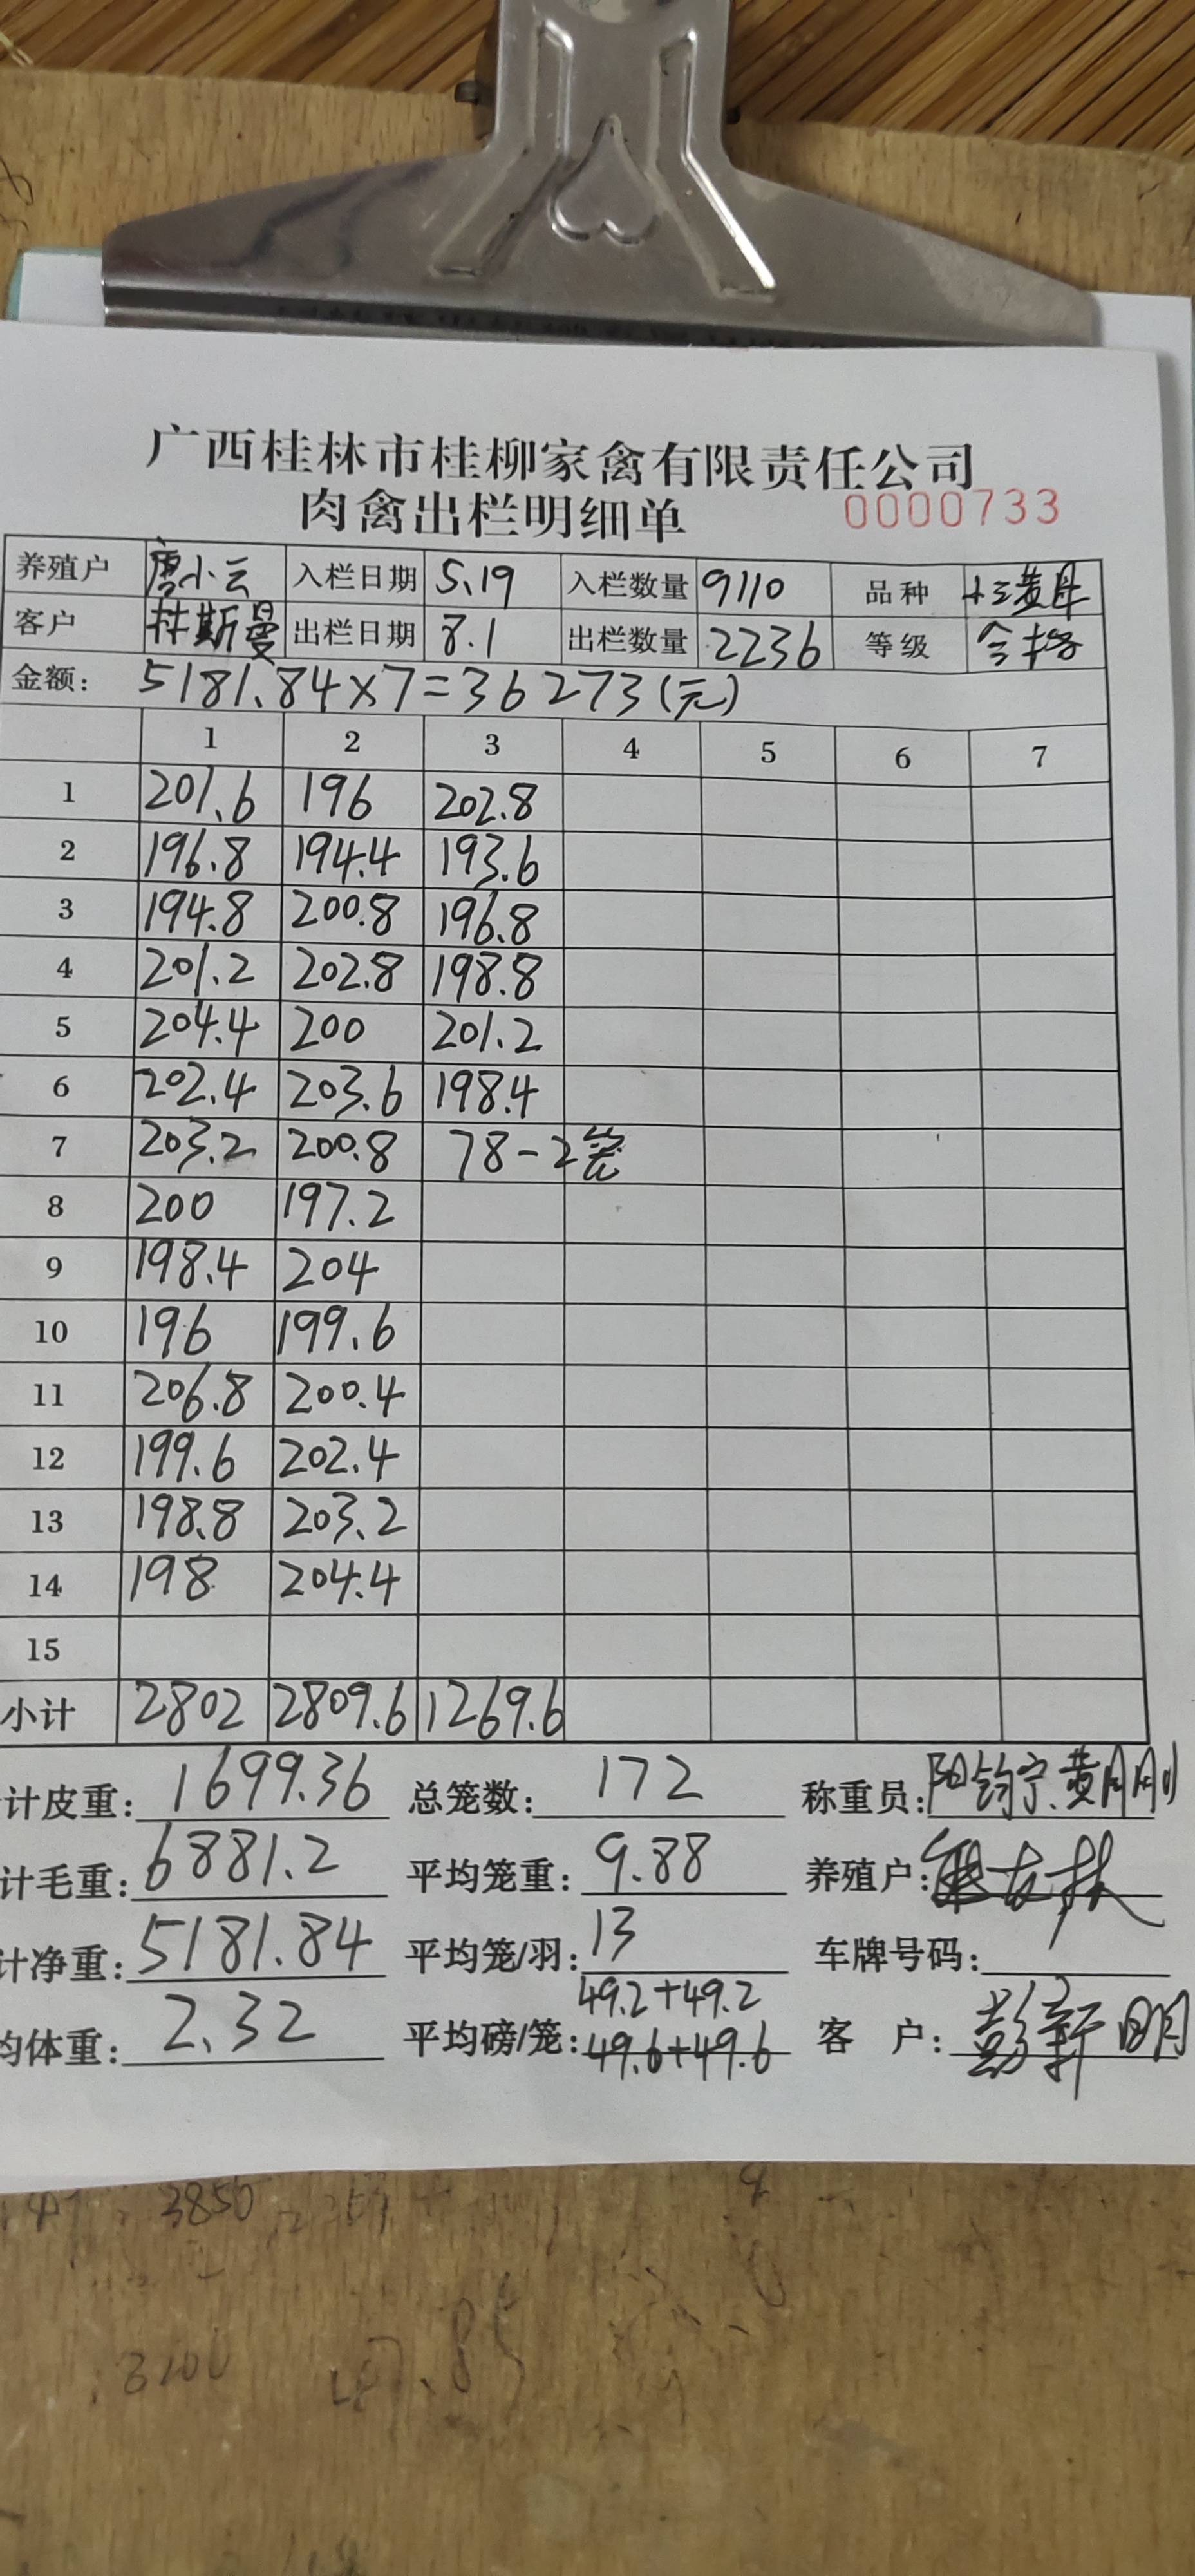 广西桂林市桂柳家禽有限责任公司
肉禽出栏明细单 0000733
养殖户 唐小云 入栏日期 5.19 入栏数量 9110 品种 土三黄母
客户 林斯曼 出栏日期 8.1 出栏数量 2236 等级 合格
金额: 5181.84×7=36273(元)
1 2 3 4 5 6 7
1 201.6 196 202.8
2 196.8 194.4 193.6
3 194.8 200.8 196.8
4 201.2 202.8 198.8
5 204.4 200 201.2
6 202.4 203.6 198.4
7 203.2 200.8 78-2笼
8 200 197.2
9 198.4 204
10 196 199.6
11 206.8 200.4
12 199.6 202.4
13 198.8 203.2
14 198 204.4
15
小计 2802 2809.6 1269.6
计皮重: 1699.36 总笼数: 172 称重员: 阳钧宁、黄刚刚
计毛重: 6881.2 平均笼重: 9.88 养殖户:
计净重: 5181.84 平均笼/羽: 13 车牌号码:
49.2+49.2
均体重: 2.32 平均磅/笼: 49.6+49.6 客 户: 彭新明
3850
3200